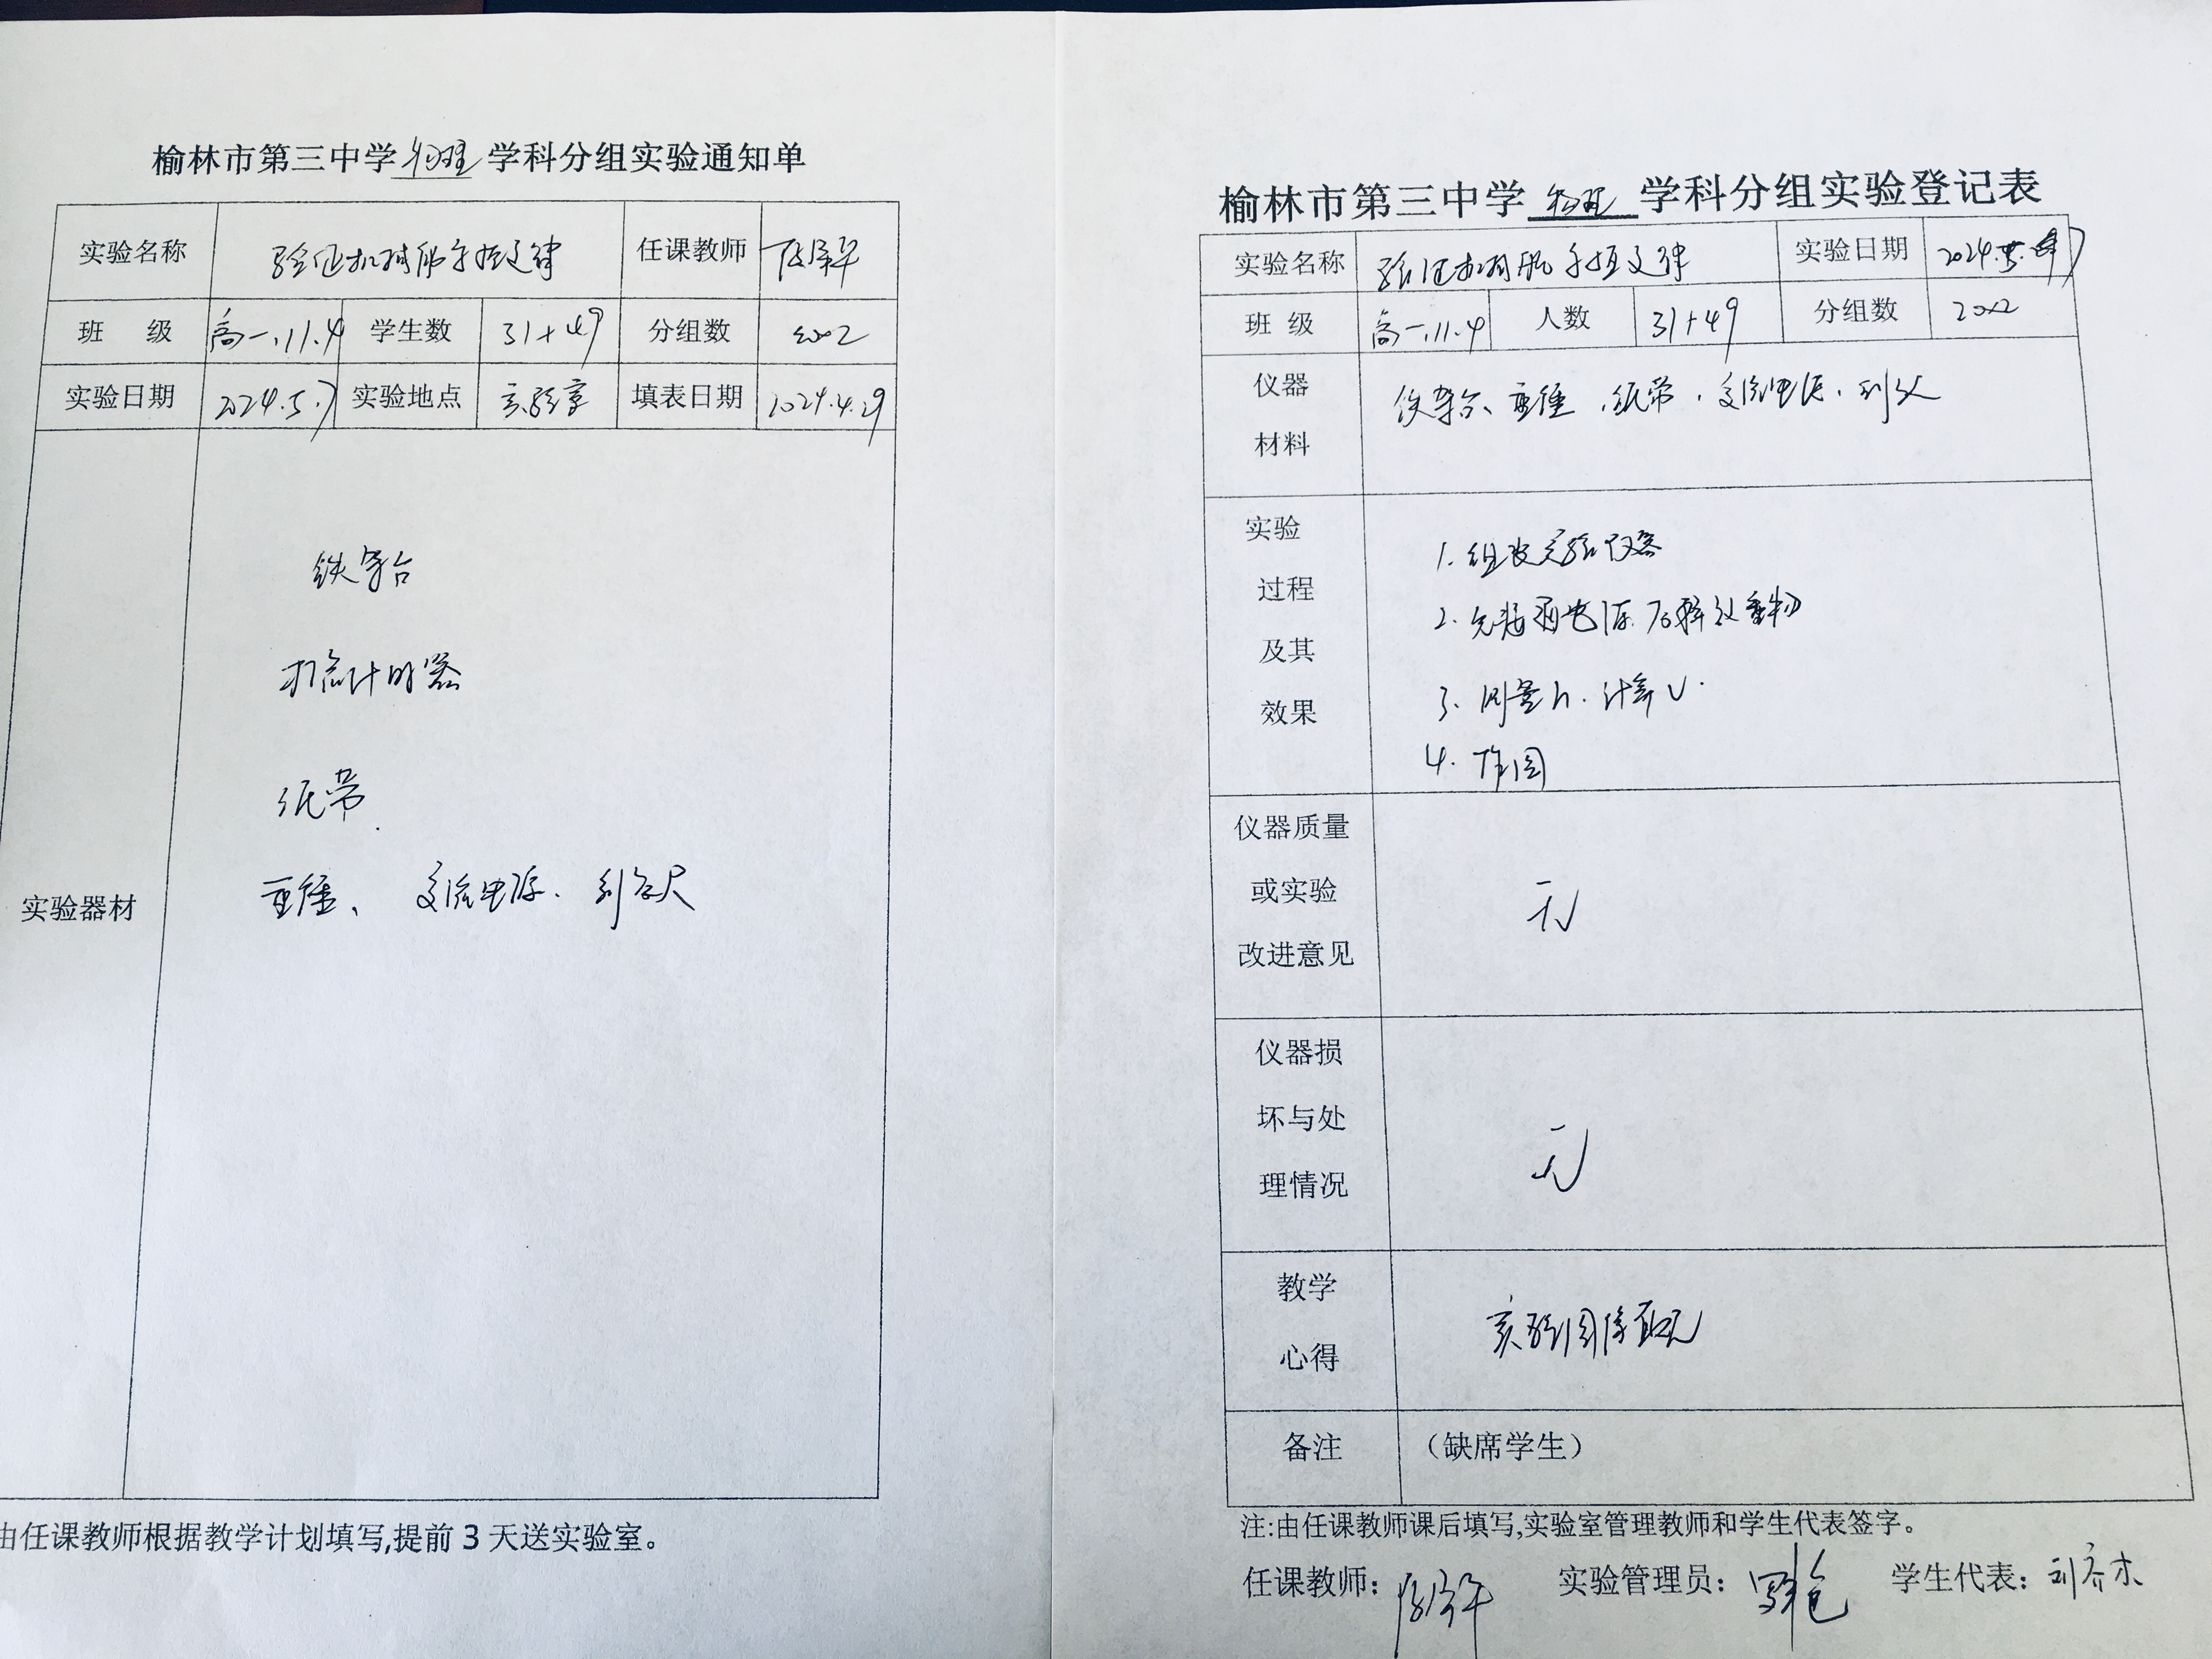 榆林市第三中学物理学科分组实验通知单
实验名称 验证机械能守恒定律 任课教师
班 级 高一.11.4 学生数 31+49 分组数 20×2
实验日期 2024.5.7 实验地点 实验室 填表日期 2024.4.29
实验器材
铁架台
打点计时器
纸带
重锤、 交流电源、刻度尺
由任课教师根据教学计划填写,提前3天送实验室。
榆林市第三中学物理学科分组实验登记表
实验名称 验证机械能守恒定律 实验日期 2024.5.7
班 级 高一.11.4 人数 31+49 分组数 20×2
仪器
材料
铁架台、重锤、纸带、交流电源、刻
实验
过程
及其
效果
1. 组装实验仪器
2. 先接通电源.后释放重物
3. 测量h.计算v.
4. 作图
仪器质量
或实验
改进意见
无
仪器损
坏与处
理情况
无
教学
心得
实验图像直观
备注 (缺席学生)
注:由任课教师课后填写,实验室管理教师和学生代表签字。
任课教师: 实验管理员: 学生代表: